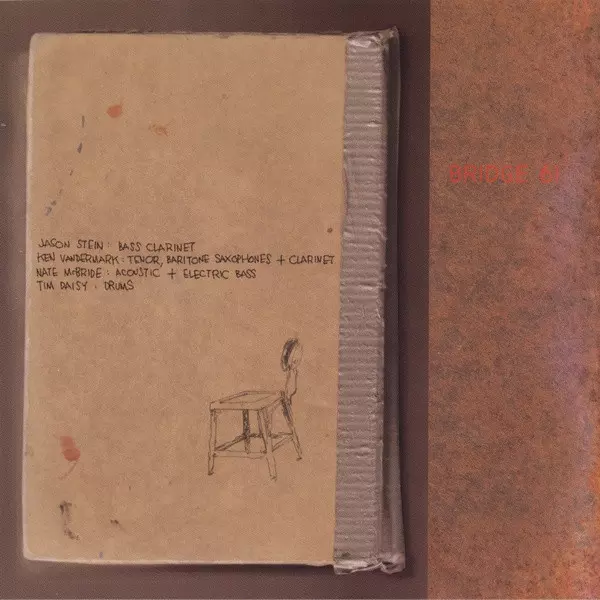 JASON STEIN : BASS CLARINET
KEN VANDERMARK : TENOR, BARITONE SAXOPHONES + CLARINET
NATE McBRIDE : ACOUSTIC + ELECTRIC BASS
TIM DAISY : DRUMS
BRIDGE 61